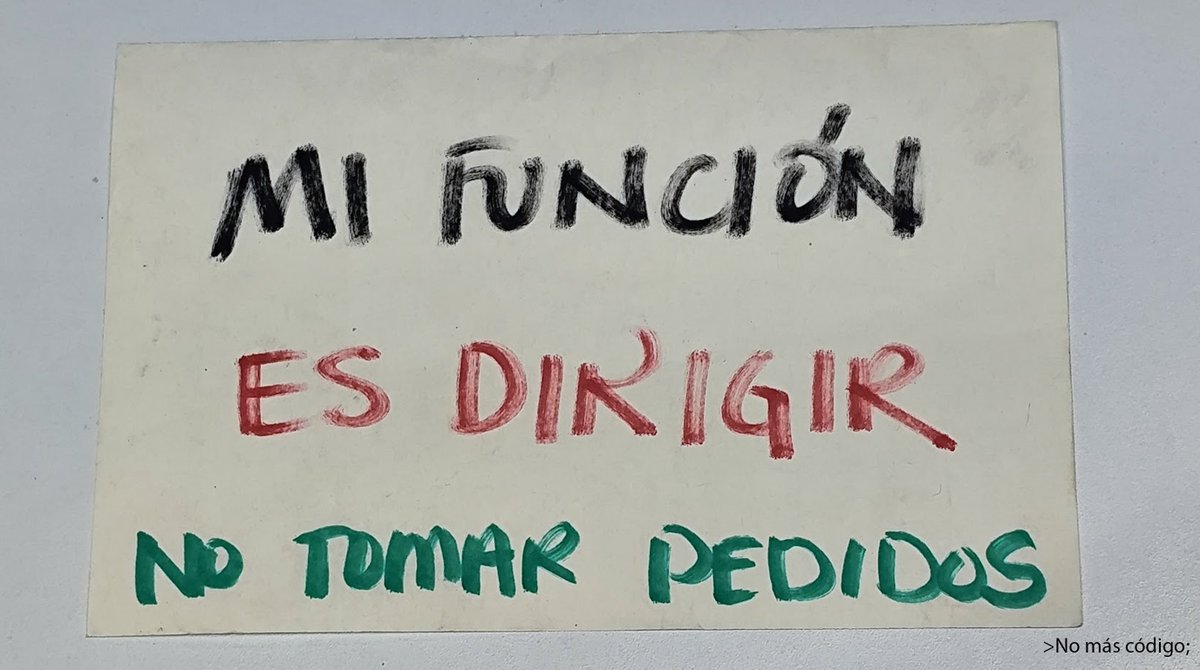 MI FUNCIÓN
ES DIRIGIR
NO TOMAR PEDIDOS
>No más código;